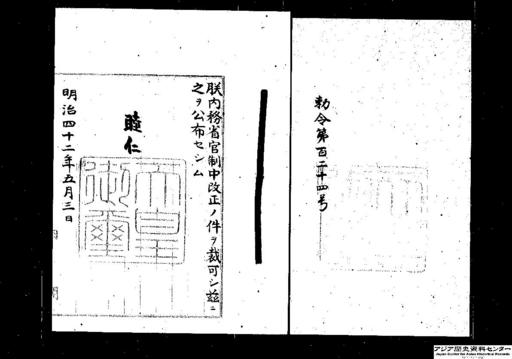 勅令第百二十四号
朕内務省官制中改正ノ件ヲ裁可シ茲ニ
之ヲ公布セシム
睦仁
天皇
御璽
明治四十二年五月三日
アジア歴史資料センター
Japan Center for Asian Historical Records